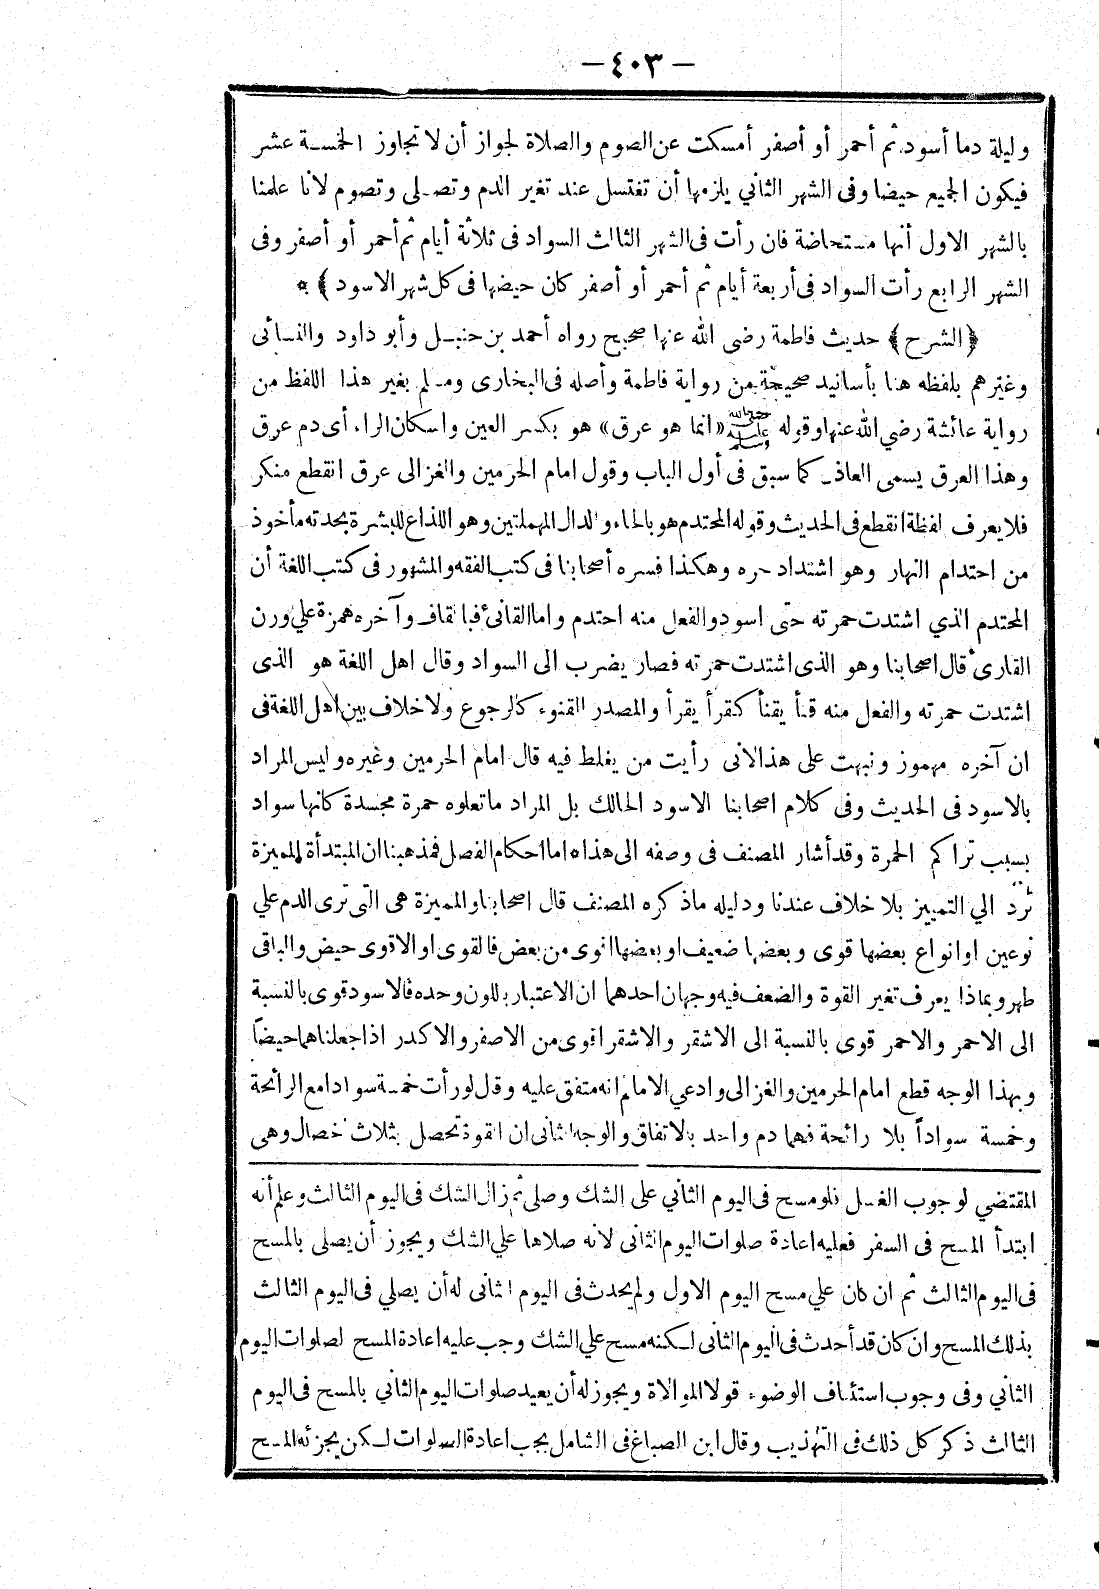 — ٤٠٣ —
وليلة دما أسود ثم أحمر أو أصفر أمسكت عن الصوم والصلاة لجواز أن لا تجاوز الخمسة عشر
فيكون الجميع حيضا وفى الشهر الثاني يلزمها أن تغتسل عند تغير الدم وتصلى وتصوم لانا علمنا
بالشهر الاول أنها مستحاضة فان رأت فى الشهر الثالث السواد فى ثلاثة أيام ثم أحمر أو أصفر وفى
الشهر الرابع رأت السواد فى أربعة أيام ثم أحمر أو أصفر كان حيضها فى كل شهر الاسود ﴾ *
﴿ الشرح ﴾ حديث فاطمة رضي الله عنها صحيح رواه أحمد بن حنبل وأبو داود والنسائى
وغيرهم بلفظه هنا بأسانيد صحيحة من رواية فاطمة وأصله فى البخارى ومسلم بغير هذا اللفظ من
رواية عائشة رضي الله عنها وقوله ﷺ «انما هو عرق» هو بكسر العين واسكان الراء أى دم عرق
وهذا العرق يسمى العاذل كما سبق فى أول الباب وقول امام الحرمين والغزالى عرق انقطع منكر
فلا يعرف لفظة انقطع فى الحديث وقوله المحتدم هو بالحاء والدال المهملتين وهو اللذاع للبشرة بحدته مأخوذ
من احتدام النهار وهو اشتداد حره وهكذا فسره أصحابنا فى كتب الفقه والمشهور فى كتب اللغة أن
المحتدم الذي اشتدت حمرته حتى اسود والفعل منه احتدم واما القانئ فبالقاف وآخره همزة علي وزن
القارئ قال اصحابنا وهو الذى اشتدت حمرته فصار يضرب الى السواد وقال اهل اللغة هو الذى
اشتدت حمرته والفعل منه قنأ يقنأ كقرأ يقرأ والمصدر القنوء كالرجوع ولا خلاف بين اهل اللغة فى
ان آخره مهموز ونبهت على هذا لانى رأيت من يغلط فيه قال امام الحرمين وغيره وليس المراد
بالاسود فى الحديث وفى كلام اصحابنا الاسود الحالك بل المراد ما تعلوه حمرة مجسدة كانها سواد
بسبب تراكم الحمرة وقد أشار المصنف فى وصفه الى هذا * اما احكام الفصل فمذهبنا ان المبتدأة المميزة
ترد الي التمييز بلا خلاف عندنا ودليله ما ذكره المصنف قال اصحابنا والمميزة هى التى ترى الدم علي
نوعين او انواع بعضها قوى وبعضها ضعيف او بعضها اقوى من بعض فالقوى او الاقوى حيض والباقى
طهر وبماذا يعرف تغير القوة والضعف فيه وجهان احدهما ان الاعتبار باللون وحده فالاسود قوى بالنسبة
الى الاحمر والاحمر قوى بالنسبة الى الاشقر والاشقر اقوى من الاصفر والاكدر اذا جعلناهما حيضاً
وبهذا الوجه قطع امام الحرمين والغزالى وادعي الامام انه متفق عليه وقال لو رأت خمسة سوادا مع الرائحة
وخمسة سواداً بلا رائحة فهما دم واحد بالاتفاق والوجه الثانى ان القوة تحصل بثلاث خصال وهى
المقتضي لوجوب الغسل فلو مسح فى اليوم الثاني على الشك وصلى ثم زال الشك فى اليوم الثالث وعلم أنه
ابتدأ المسح فى السفر فعليه اعادة صلوات اليوم الثانى لانه صلاها علي الشك ويجوز أن يصلى بالمسح
فى اليوم الثالث ثم ان كان علي مسح اليوم الاول ولم يحدث فى اليوم الثانى له أن يصلي فى اليوم الثالث
بذلك المسح وان كان قد أحدث فى اليوم الثانى لكنه مسح علي الشك وجب عليه اعادة المسح لصلوات اليوم
الثاني وفى وجوب استئناف الوضوء قولا الموالاة ويجوز له أن يعيد صلوات اليوم الثاني بالمسح فى اليوم
الثالث ذكر كل ذلك فى التهذيب وقال ابن الصباغ فى الشامل يجب اعادة الصلوات لكن يجزئه المسح